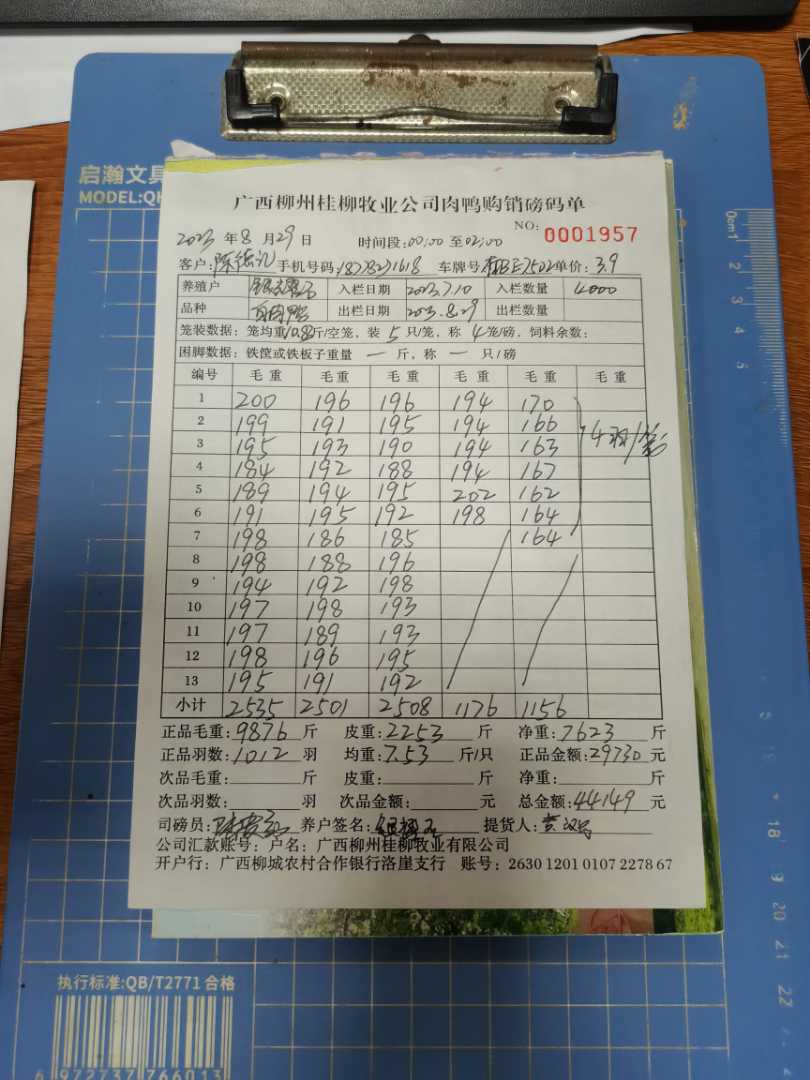 启瀚文具
MODEL:QH
广西柳州桂柳牧业公司肉鸭购销磅码单
NO: 0001957
2023 年 8 月 29 日 时间段:00:00 至 02:00
客户: 手机号码:18778271618 车牌号: 单价: 3.9
养殖户 入栏日期 2023.7.10 入栏数量 4000
品种 出栏日期 2023.8.29 出栏数量
笼装数据: 笼均重10.8斤/空笼, 装 5 只/笼, 称 4 笼/磅, 饲料余数:
困脚数据: 铁筐或铁板子重量 一 斤, 称 一 只/磅
编号 毛重 毛重 毛重 毛重 毛重 毛重
1 200 196 196 194 170
2 199 191 195 194 166
3 195 193 190 194 163
4 184 192 188 194 167
5 189 194 195 202 162
6 191 195 192 198 164
7 198 186 185 164
8 198 188 196
9 194 192 198
10 197 198 193
11 197 189 193
12 198 196 195
13 195 191 192
4羽/笼
小计 2535 2501 2508 1176 1156
正品毛重: 9876 斤 皮重: 2253 斤 净重: 7623 斤
正品羽数: 1012 羽 均重: 7.53 斤/只 正品金额: 29730 元
次品毛重: 斤 皮重: 斤 净重: 斤
次品羽数: 羽 次品金额: 元 总金额: 44149 元
司磅员: 养户签名: 提货人:
公司汇款账号: 户名: 广西柳州桂柳牧业有限公司
开户行: 广西柳城农村合作银行洛崖支行 账号: 2630 1201 0107 2278 67
0cm 1
2
3
4
5
18
19
20
21
22
执行标准:QB/T2771 合格
6 972737 766013